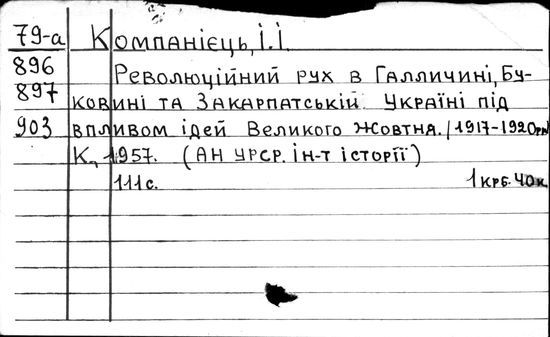 79-а Компанієць, І.І.
896 Революційний рух в Галличині, Бу-
897 ковині та Закарпатській Україні під
903 впливом ідей Великого Жовтня. /1917-1920рр/
К., 1957. (АН УРСР. ін-т історії)
111с. 1 крб. 40 к.